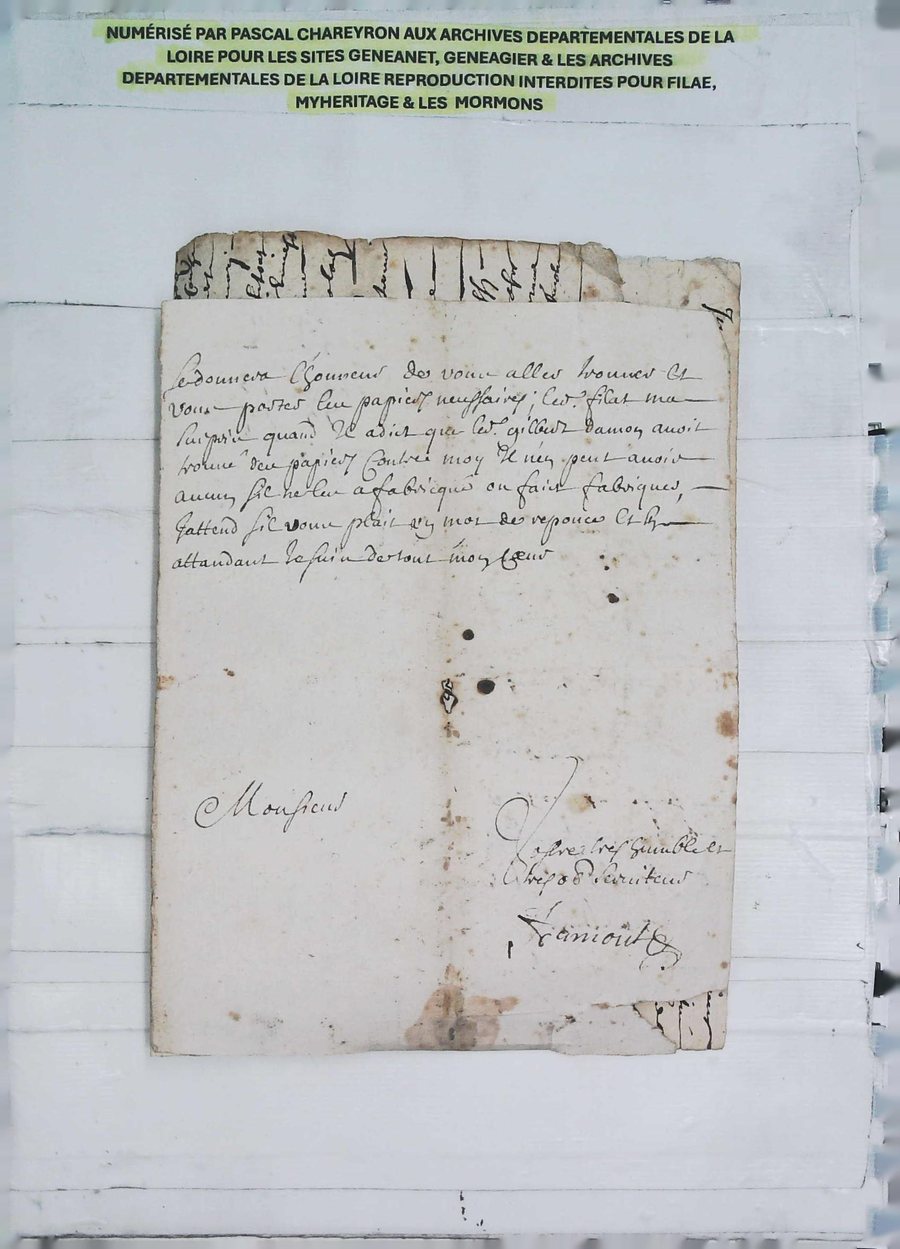 NUMÉRISÉ PAR PASCAL CHAREYRON AUX ARCHIVES DEPARTEMENTALES DE LA
LOIRE POUR LES SITES GENEANET, GENEAGIER & LES ARCHIVES
DEPARTEMENTALES DE LA LOIRE REPRODUCTION INTERDITES POUR FILAE,
MYHERITAGE & LES MORMONS
Je donnera lhonneur de vous aller trouver Et
vous porter les papiers ; led. filat ma
quand Il a dict que led. gilbert damon avoit
trouvé des papiers Contre moy Il nen peut avoir
aucun sil ne les a fabricqué ou faict fabriquer,
Jattend sil vous plait un mot de reponce Et En
attandant Je suis de tout mon Cœur
Monsieur
Vostre tres humble et
tres ob. serviteur